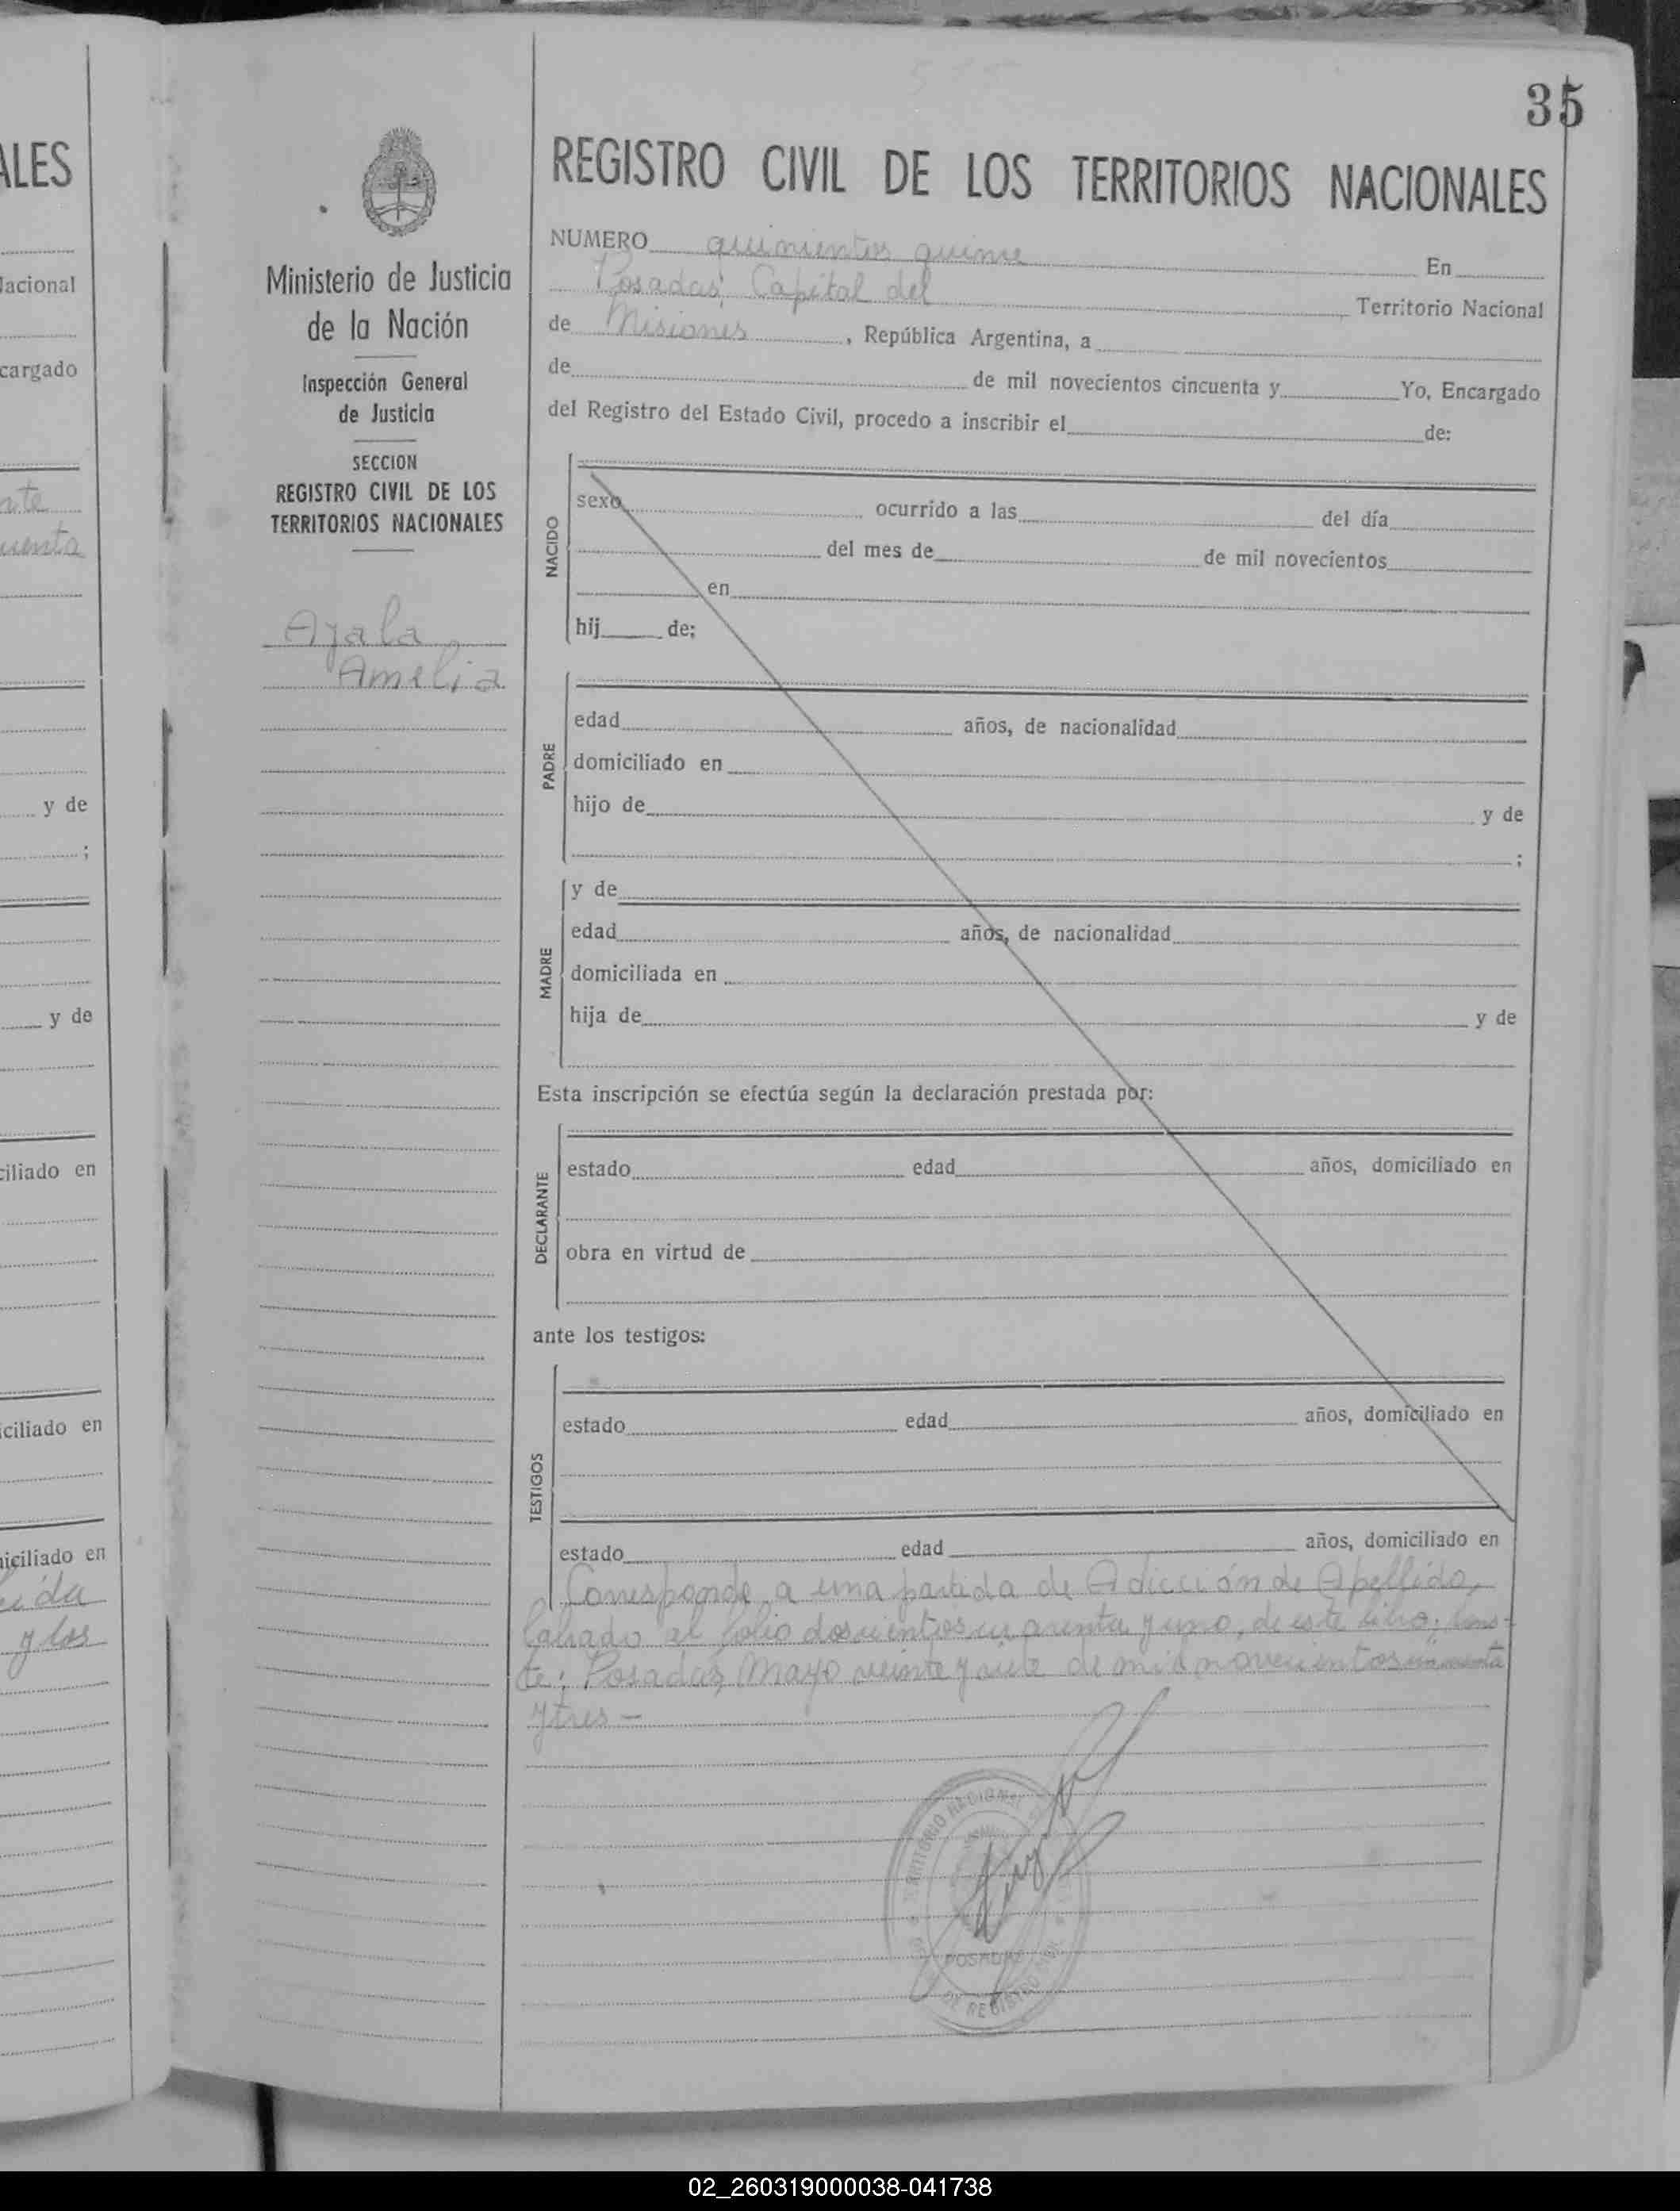 ALES
Nacional
cargado
y de
;
y de
ciliado en
iciliado en
niciliado en
y los
35
Ministerio de Justicia
de la Nación
Inspección General
de Justicia
SECCION
REGISTRO CIVIL DE LOS
TERRITORIOS NACIONALES
Ayala
Amelia
REGISTRO CIVIL DE LOS TERRITORIOS NACIONALES
NUMERO quinientos quince En
Posadas, Capital del Territorio Nacional
de Misiones, República Argentina, a
de de mil novecientos cincuenta y Yo, Encargado
del Registro del Estado Civil, procedo a inscribir el de:
NACIDO
sexo ocurrido a las del día
del mes de de mil novecientos
en
hij de;
PADRE
edad años, de nacionalidad
domiciliado en
hijo de y de
;
MADRE
y de
edad años, de nacionalidad
domiciliada en
hija de y de
Esta inscripción se efectúa según la declaración prestada por:
DECLARANTE
estado edad años, domiciliado en
obra en virtud de
ante los testigos:
TESTIGOS
estado edad años, domiciliado en
estado edad años, domiciliado en
Corresponde a una partida de Adicción de Apellido,
labrado al folio doscientos cuarenta y uno, de este libro; Cons-
te; Posadas, Mayo veinte y siete de mil novecientos cincuenta
y tres —
POSADAS
02_260319000038-041738